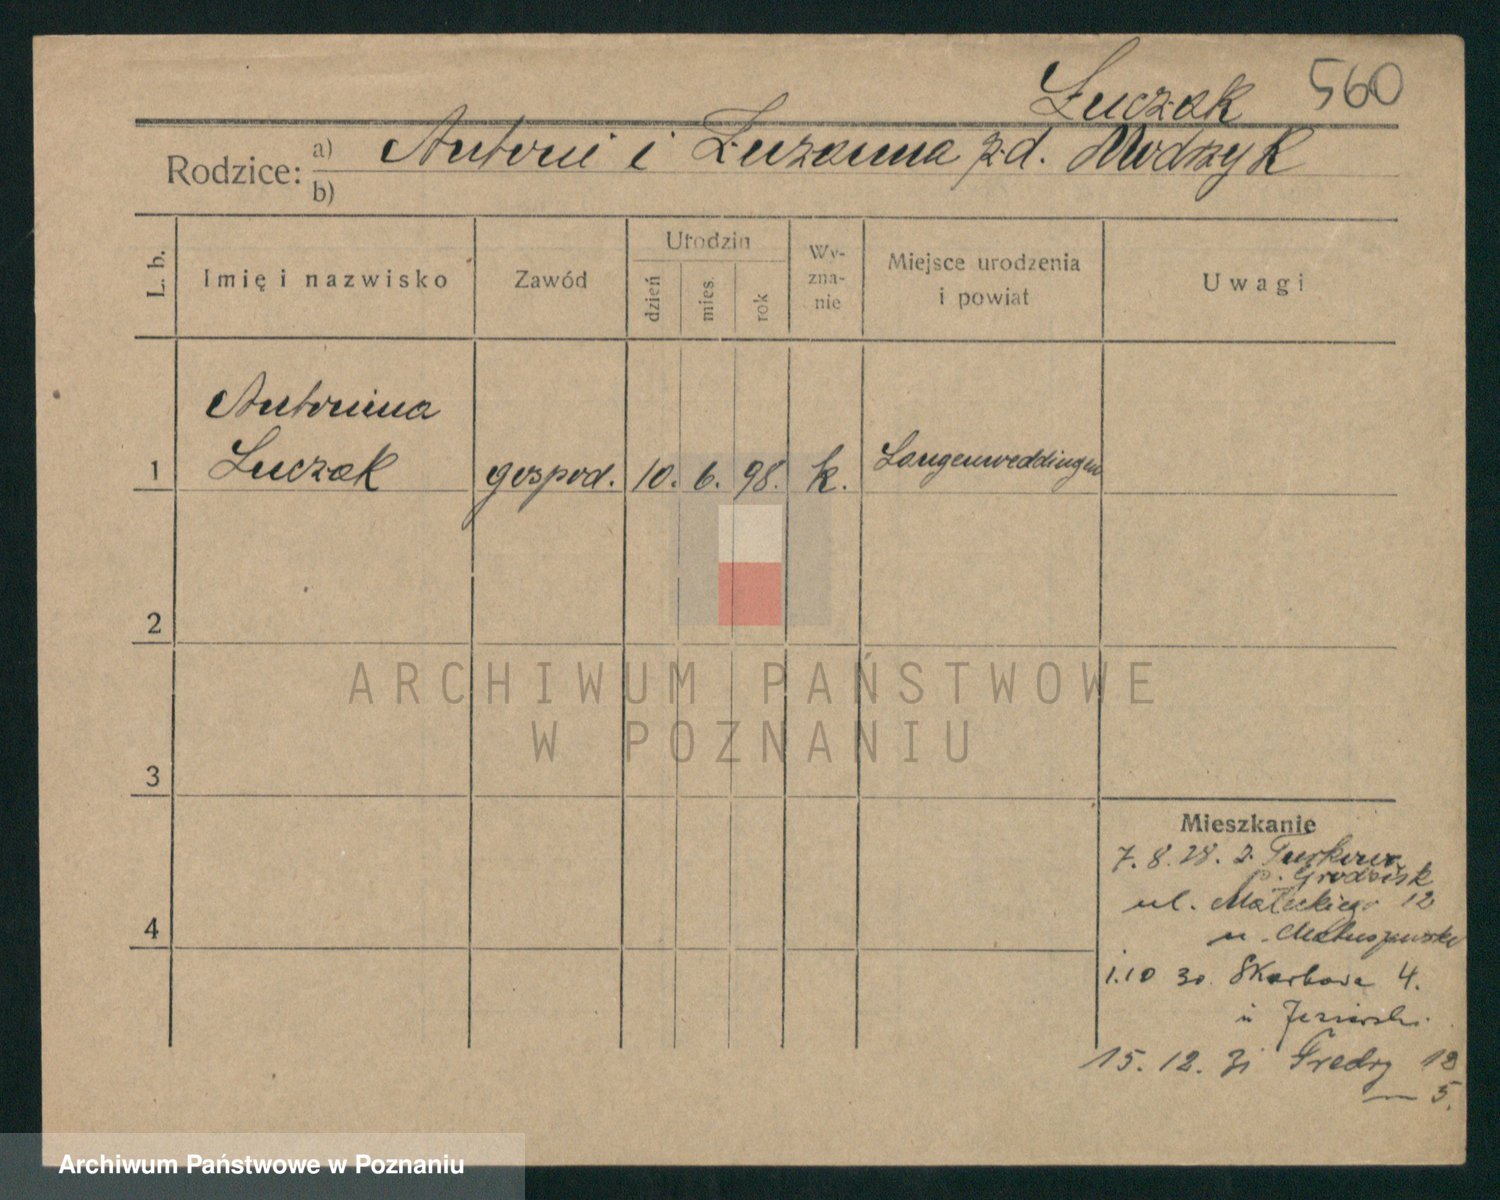 Łuczak 560
Rodzice: a) Antoni i Zuzanna z d. Modrzyk
b)
L. b. Imię i nazwisko Zawód Urodzin dzień mies. rok Wy-zna-nie Miejsce urodzenia i powiat Uwagi
Antonina
1 Łuczak gospod. 10. 6. 98. k. Langenweddingen
2
ARCHIWUM PAŃSTWOWE
W POZNANIU
3
Mieszkanie
7. 8. 28. z Turkowa
p. Grodzisk
ul. Małeckiego 12
4
1.10 30. Skarbowa 4.
u
15. 12. 31 Fredry 12
5.
Archiwum Państwowe w Poznaniu